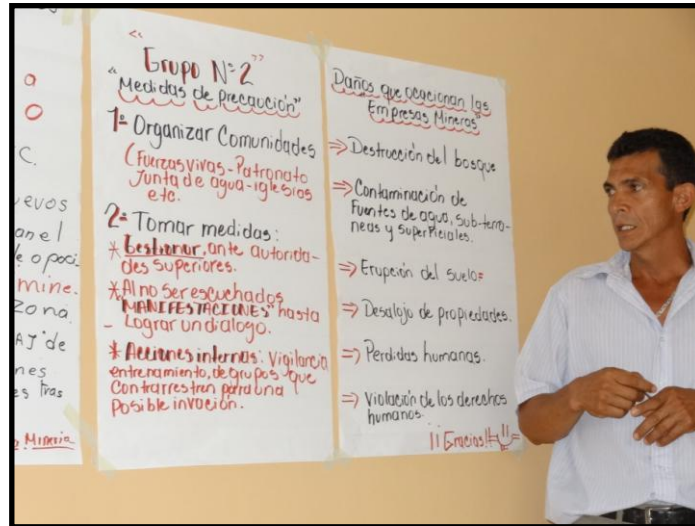 a
O
C.
uevos
an el
e opoci-
mine.
zona.
AJ de
nes
es tras
Mineria
"Grupo Nº 2"
"Medidas de Precaución"
1º Organizar Comunidades
(Fuerzas vivas - Patronato
Junta de agua - iglesias
etc.
2º Tomar medidas:
* Gestionar, ante autorida-
des superiores.
* Al no ser escuchados
"MANIFESTACIONES" hasta
- Lograr un dialogo.
* Acciones internas: Vigilancia
entrenamiento, de grupos que
Contrarresten para una
Posible invación.
Daños que ocacionan las
"Empresas Mineras"
=> Destrucción del bosque
=> Contaminación de
Fuentes de agua, sub-terra-
neas y superficiales.
=> Erupción del suelo=
=> Desalojo de propiedades.
=> Perdidas humanas.
=> Violación de los derechos
humanos.
¡¡Gracias!!